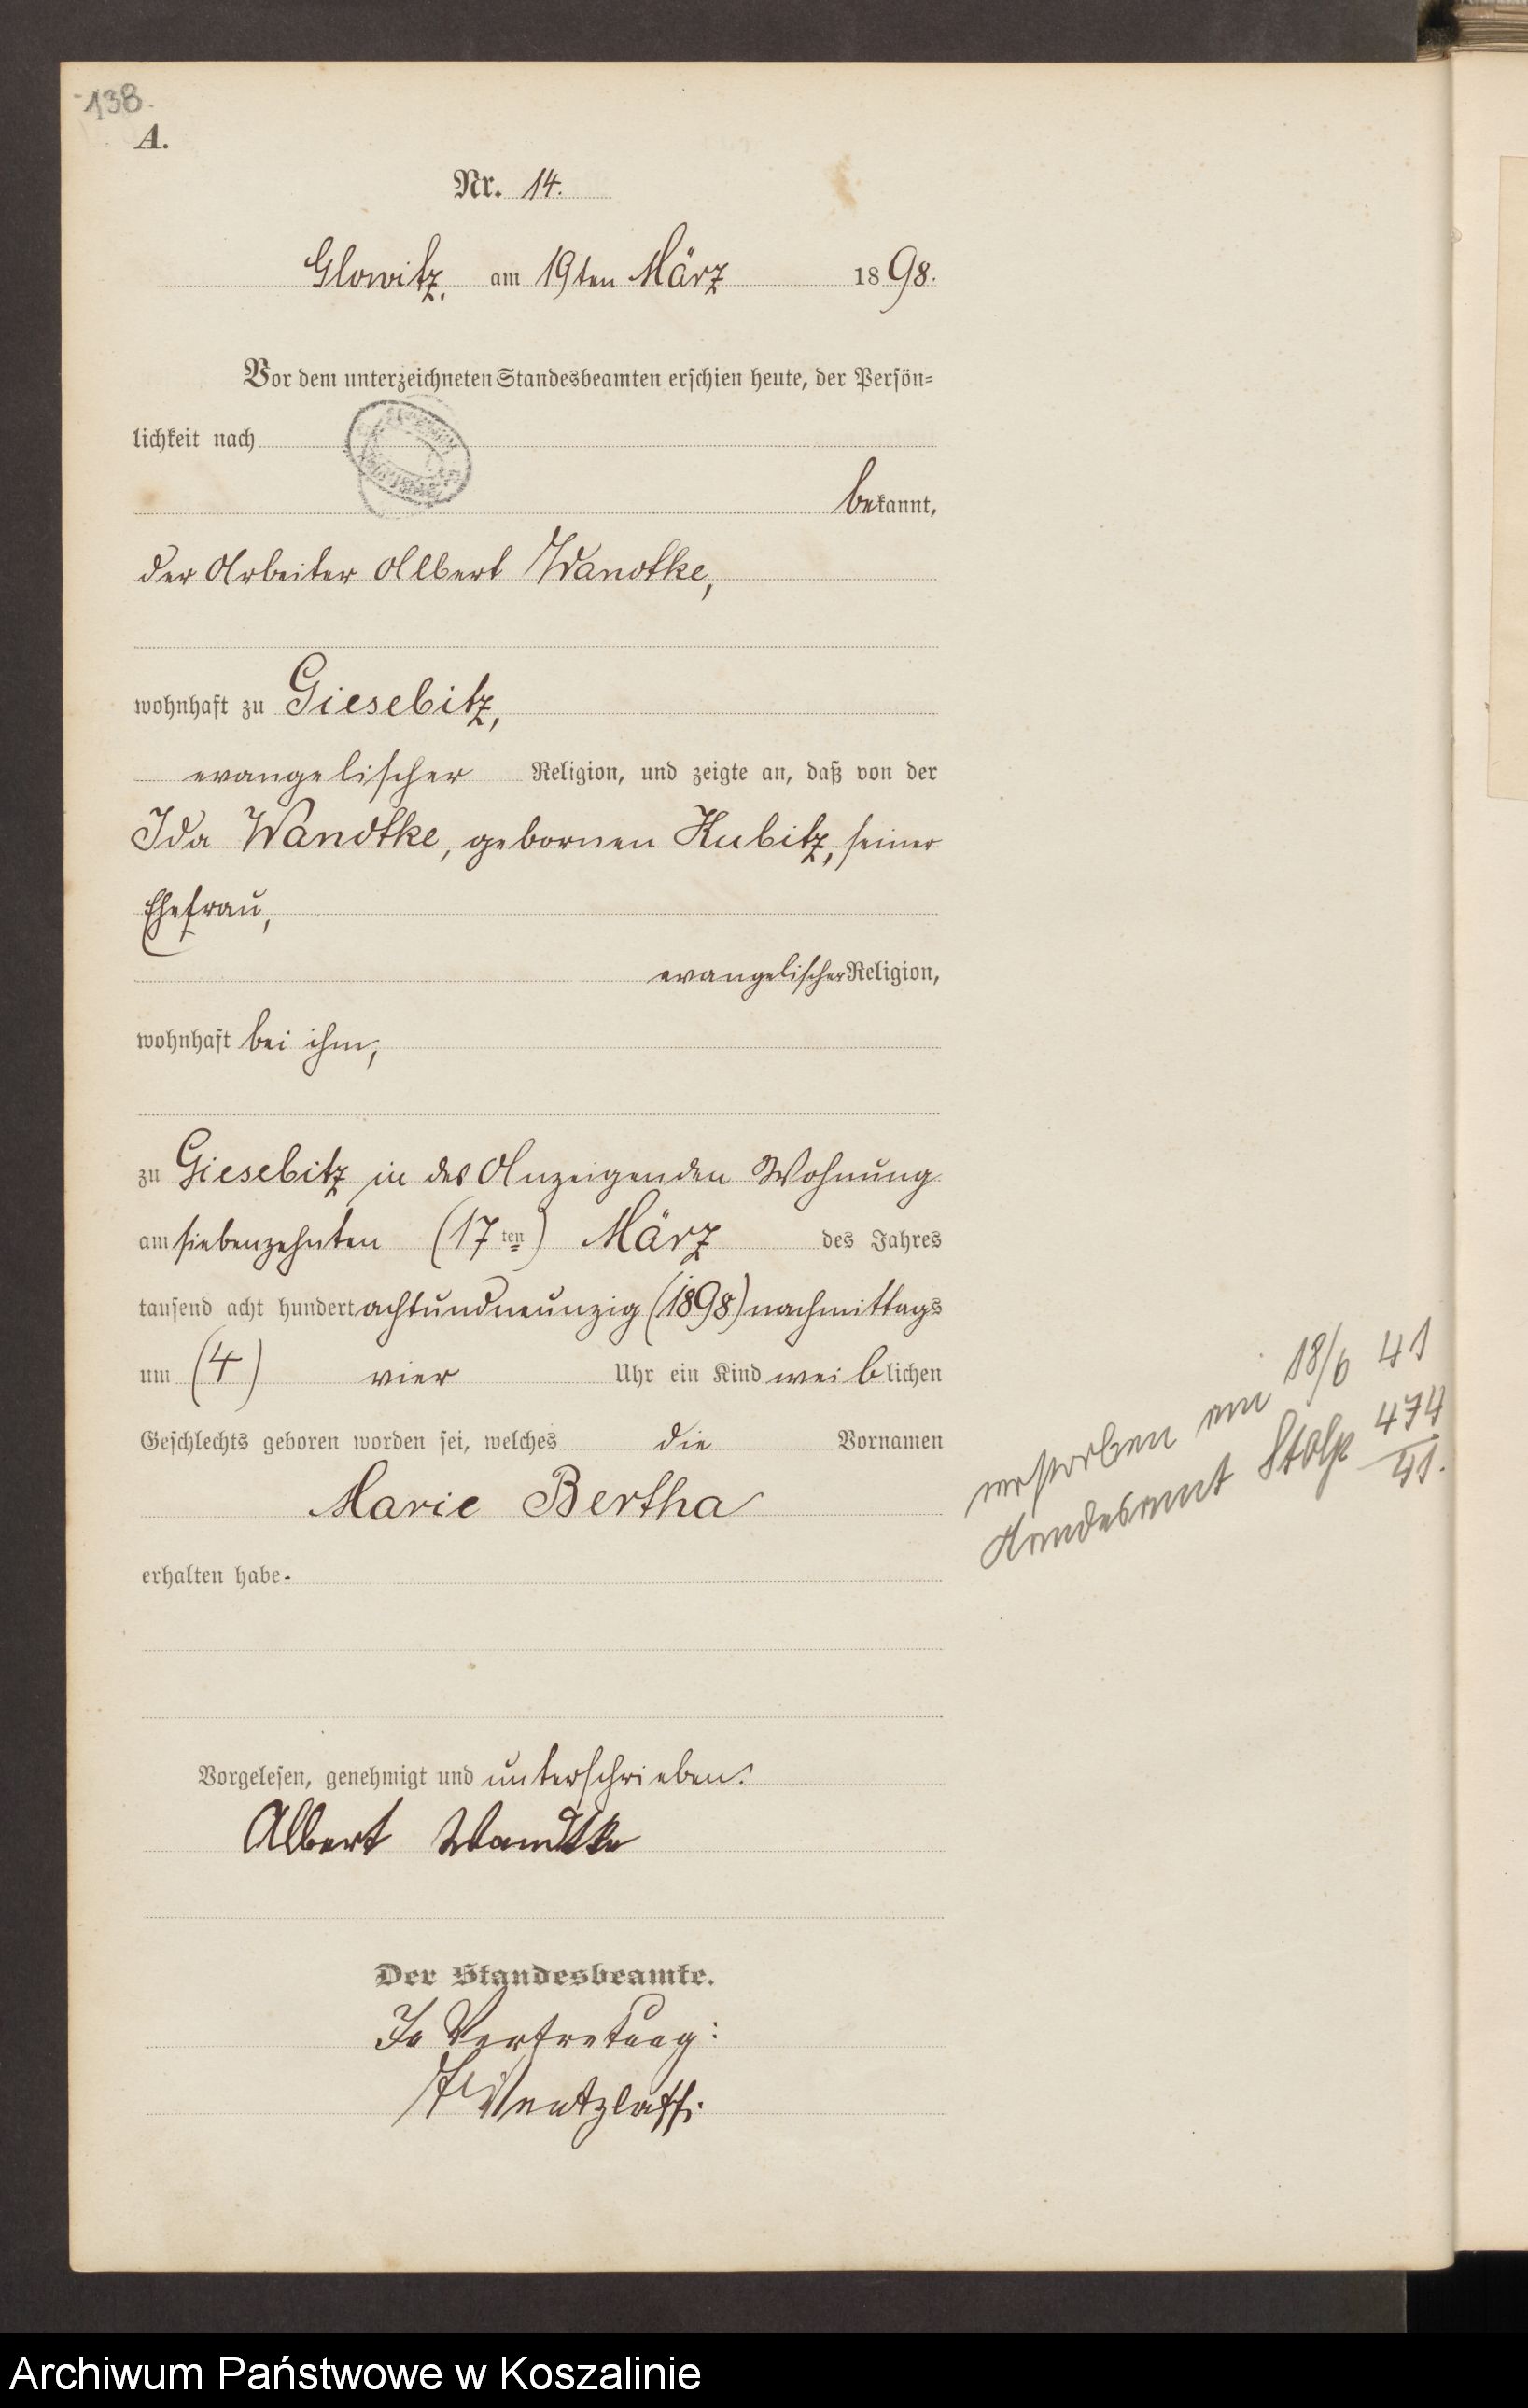 138.
A.
Nr. 14.
Glowitz, am 19ten März 1898.
Vor dem unterzeichneten Standesbeamten erschien heute, der Persön=
lichkeit nach
bekannt,
der Arbeiter Albert Wandtke,
wohnhaft zu Giesebitz,
evangelischer Religion, und zeigte an, daß von der
Ida Wandtke, gebornen Kubitz, seiner
Ehefrau,
evangelischer Religion,
wohnhaft bei ihm,
zu Giesebitz in des Anzeigenden Wohnung
am siebenzehnten (17ten) März des Jahres
tausend acht hundert achtundneunzig (1898) nachmittags
um (4) vier Uhr ein Kind weiblichen
Geschlechts geboren worden sei, welches die Vornamen
Marie Bertha
erhalten habe.
verstorben am 18/6 41
Standesamt Stolp 474/41.
Vorgelesen, genehmigt und unterschrieben.
Albert Wandtke
Der Standesbeamte.
In Vertretung:
Wentzlaff.
Archiwum Państwowe w Koszalinie